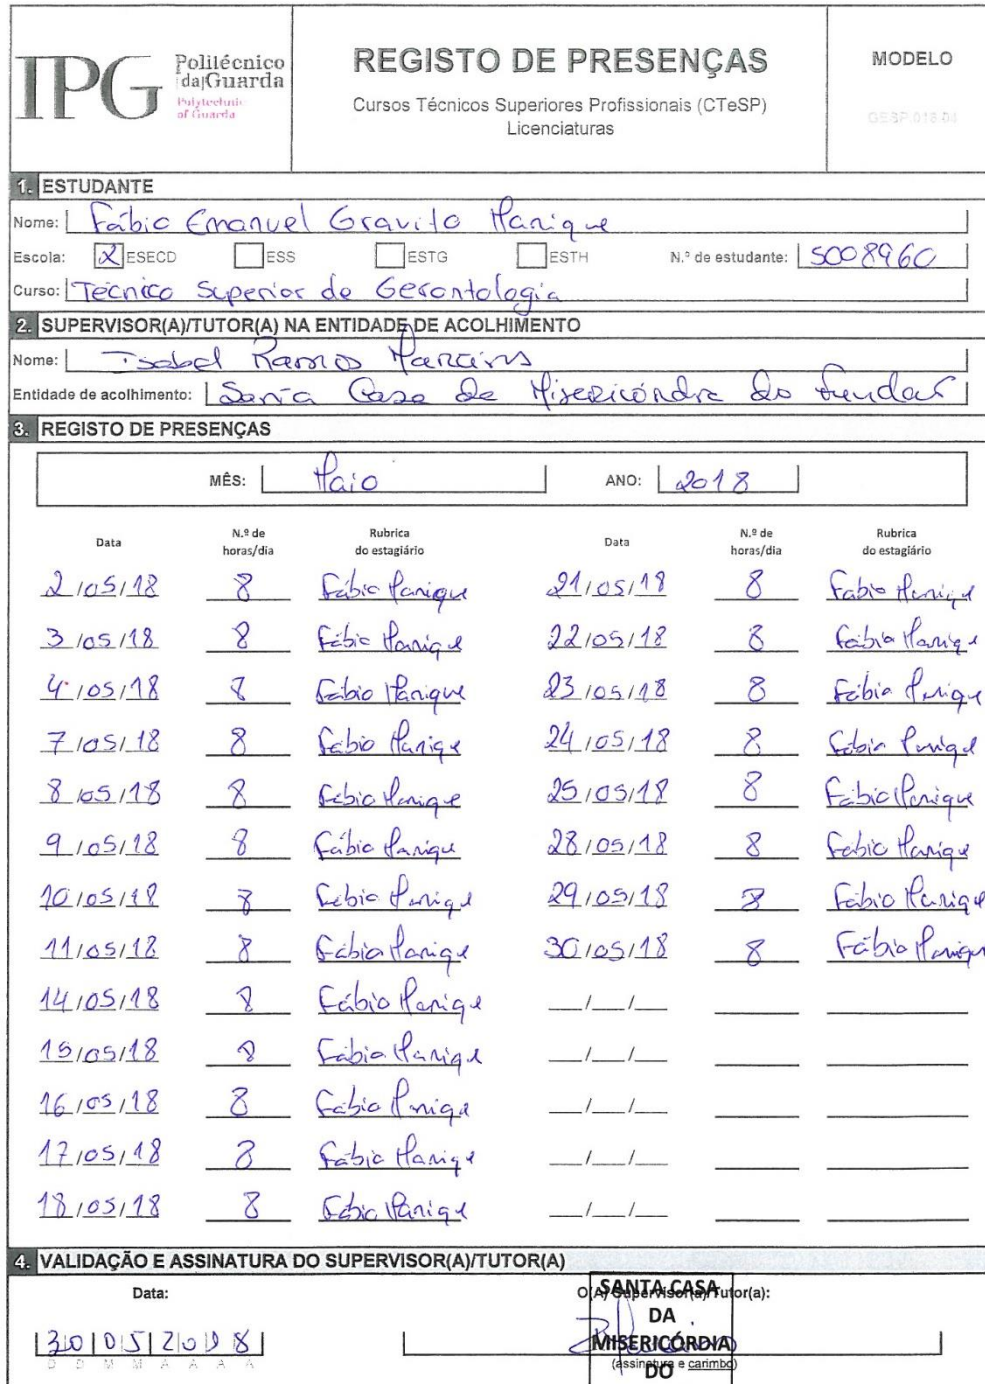 IPG Politécnico da Guarda
Polytechnic of Guarda
REGISTO DE PRESENÇAS
Cursos Técnicos Superiores Profissionais (CTeSP)
Licenciaturas
MODELO
GESP.018.04
1. ESTUDANTE
Nome: Fábio Emanuel Gravito Manique
Escola: X ESECD ESS ESTG ESTH N.º de estudante: 5008960
Curso: Técnico Superior de Gerontologia
2. SUPERVISOR(A)/TUTOR(A) NA ENTIDADE DE ACOLHIMENTO
Nome: Isabel Ramos
Entidade de acolhimento: Santa Casa da Misericórdia do Fundão
3. REGISTO DE PRESENÇAS
MÊS: Maio ANO: 2018
Data N.º de horas/dia Rubrica do estagiário Data N.º de horas/dia Rubrica do estagiário
2/05/18 8 Fábio Manique 21/05/18 8 Fábio Manique
3/05/18 8 Fábio Manique 22/05/18 8 Fábio Manique
4/05/18 8 Fábio Manique 23/05/18 8 Fábio Manique
7/05/18 8 Fábio Manique 24/05/18 8 Fábio Manique
8/05/18 8 Fábio Manique 25/05/18 8 Fábio Manique
9/05/18 8 Fábio Manique 28/05/18 8 Fábio Manique
10/05/18 8 Fábio Manique 29/05/18 8 Fábio Manique
11/05/18 8 Fábio Manique 30/05/18 8 Fábio Manique
14/05/18 8 Fábio Manique __/__/__
15/05/18 8 Fábio Manique __/__/__
16/05/18 8 Fábio Manique __/__/__
17/05/18 8 Fábio Manique __/__/__
18/05/18 8 Fábio Manique __/__/__
4. VALIDAÇÃO E ASSINATURA DO SUPERVISOR(A)/TUTOR(A)
Data: O(A) Supervisor(a)/Tutor(a):
SANTA CASA
DA
MISERICÓRDIA
DO
30 05 2018
D D M M A A A A
(assinatura e carimbo)